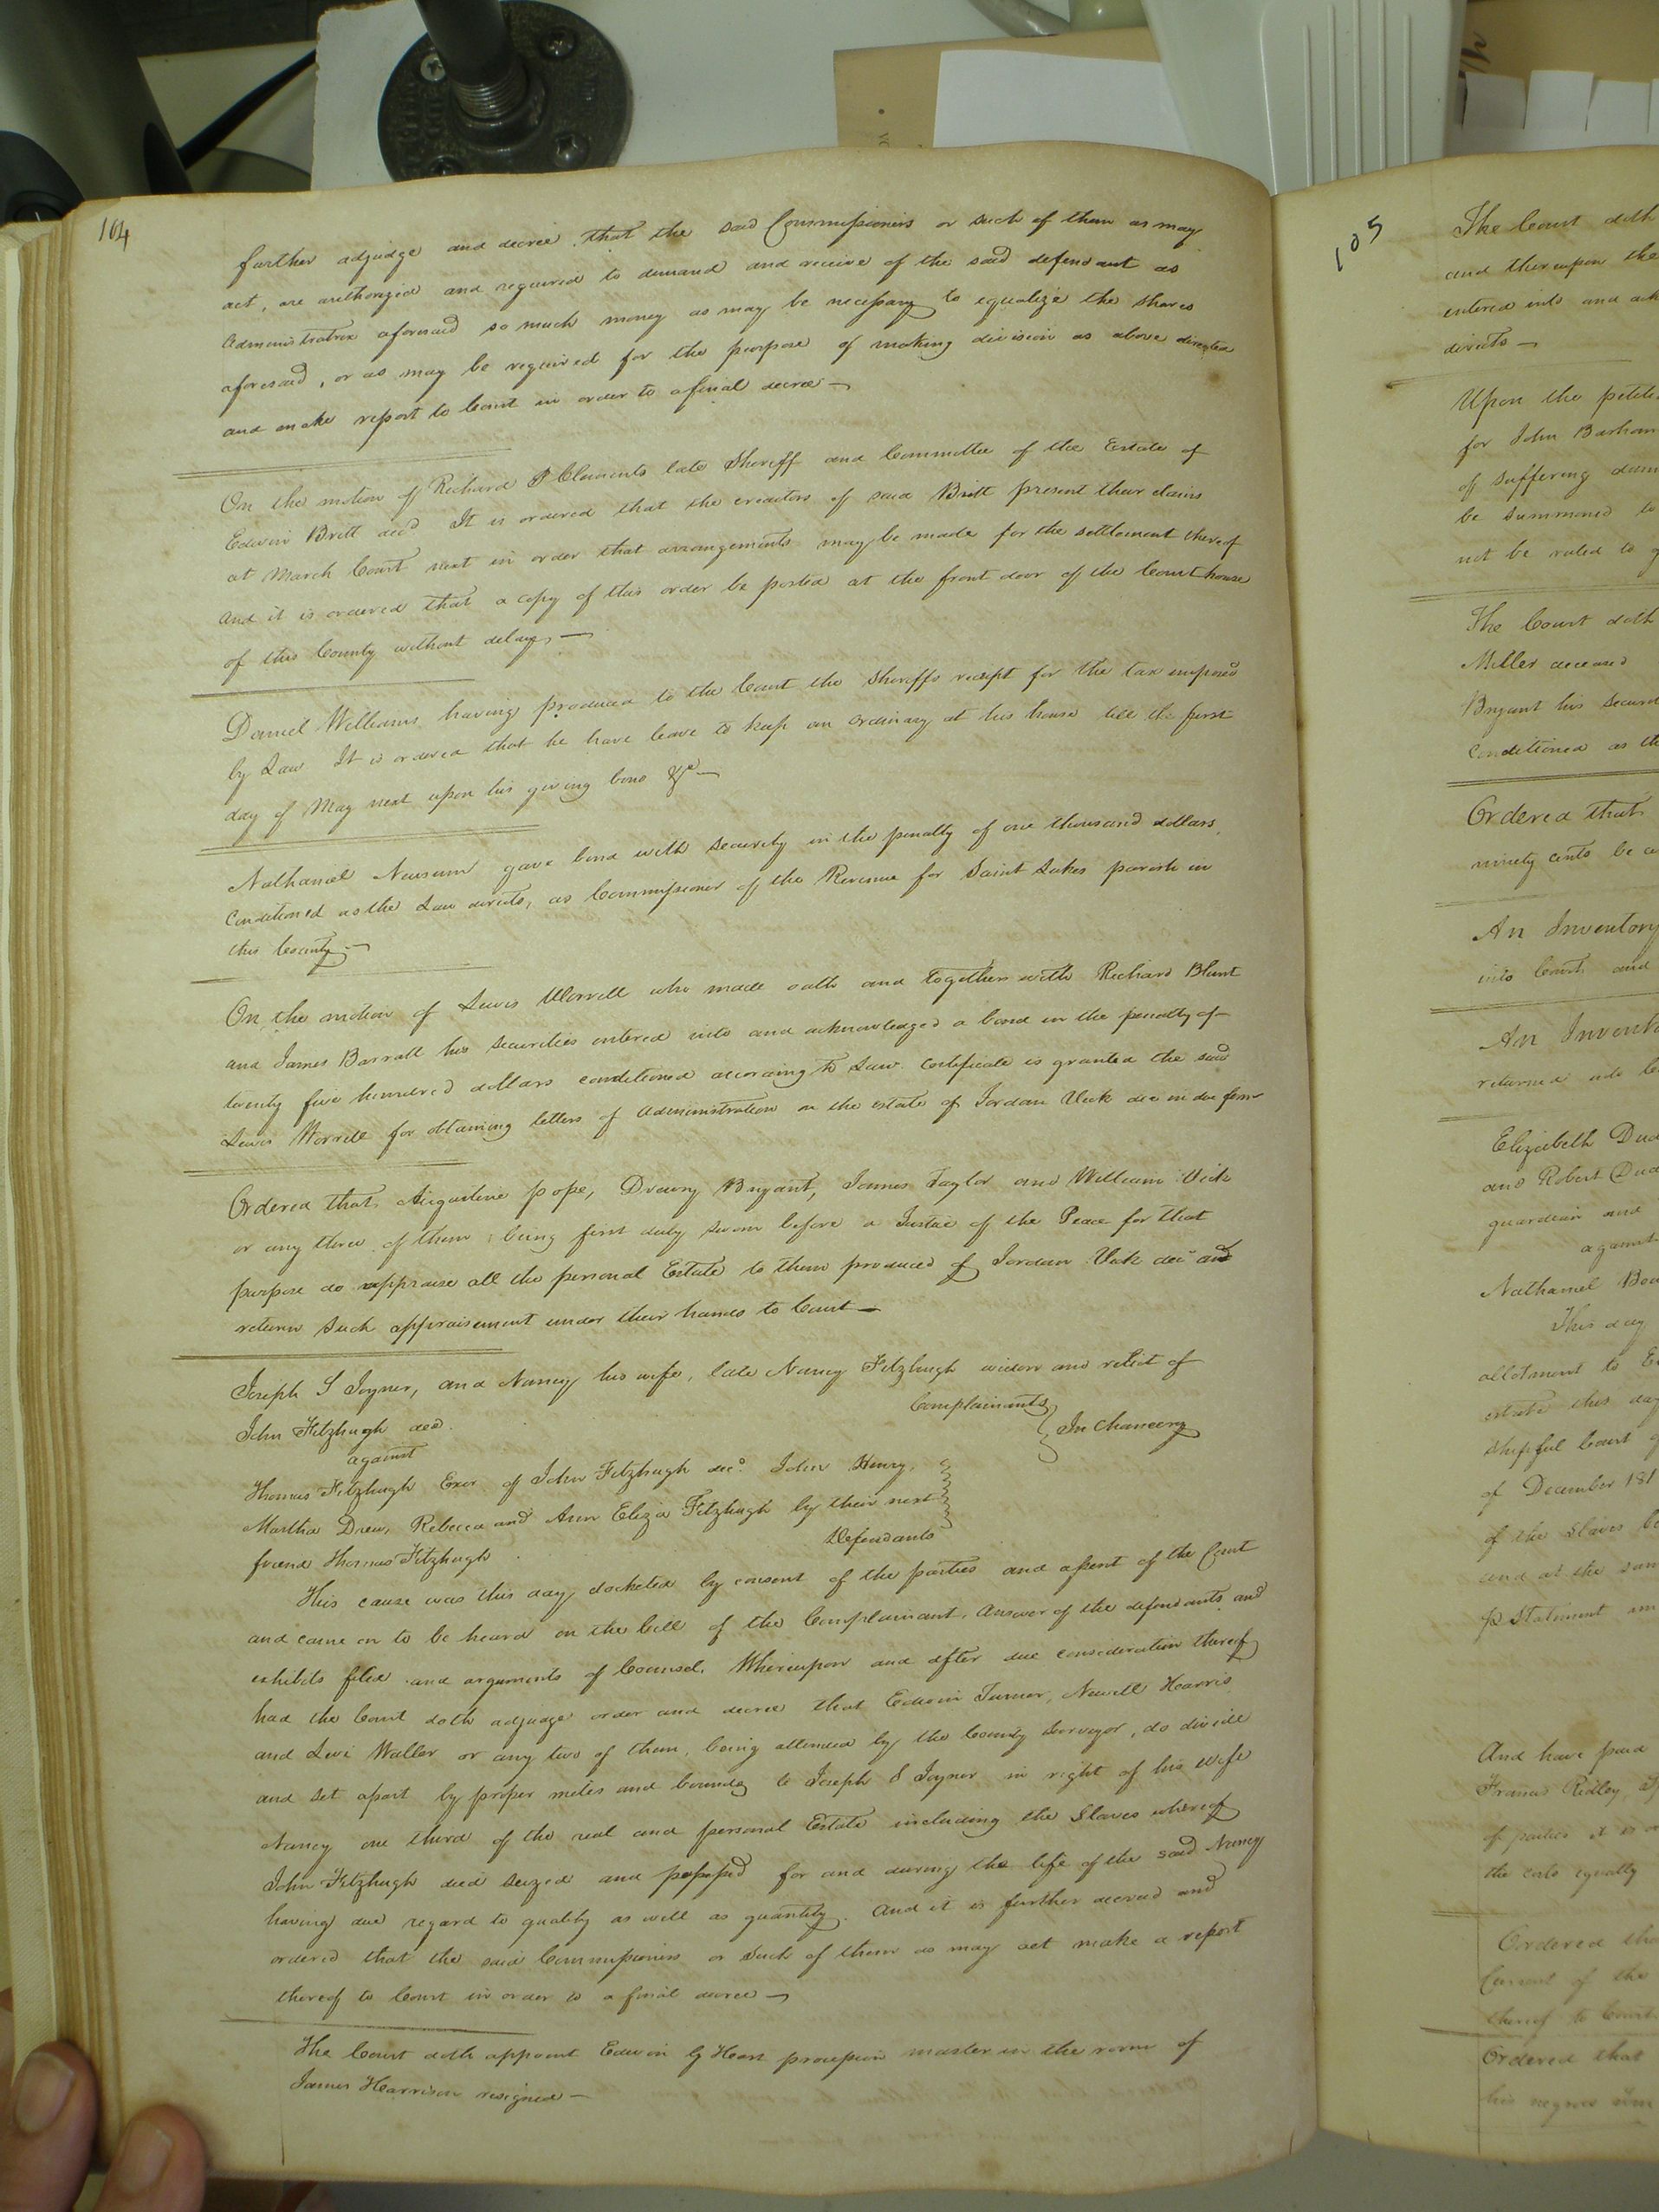 164
further adjudge and decree that the said Commissioners or such of them as may
act, are authorized and required to demand and receive of the said defendant as
Administratrix aforesaid so much money as may be necessary to equalize the shares
aforesaid, or as may be required for the purpose of making division as above directed
and make report to Court in order to a final decree —
On the motion of Richard P Clements late Sheriff and Committee of the Estate of
Edwin Britt decd It is ordered that the creditors of said Britt present their claims
at March Court next in order that arrangements may be made for the settlement thereof
And it is ordered that a copy of this order be posted at the front door of the Courthouse
of this County without delay —
Daniel Williams having produced to the Court the Sheriffs receipt for the tax imposed
by Law It is ordered that he have leave to keep an ordinary at his house till the first
day of May next upon his giving bond &c —
Nathaniel Newsum gave bond with security in the penalty of one thousand dollars
Conditioned as the Law directs, as Commissioner of the Revenue for Saint Lukes parish in
this County —
On the motion of Lewis Worrell who made oath and together with Richard Blunt
and James Barrall his securities entered into and acknowledged a bond in the penalty of
twenty five hundred dollars conditioned according to Law Certificate is granted the said
Lewis Worrell for obtaining letters of Administration on the estate of Jordan Vick decd in due form
Ordered that Augustine pope, Drewry Bryant, James Taylor and William Vick
or any three of them being first duly sworn before a Justice of the Peace for that
purpose do appraise all the personal Estate to them produced of Jordan Vick decd and
return such appraisement under their hands to Court —
Joseph S Joyner, and Nancy his wife, late Nancy Fitzhugh widow and relict of
John Fitzhugh decd. Complainants
against In Chancery
Thomas Fitzhugh Exor of John Fitzhugh decd. John Henry,
Martha Drew, Rebecca and Ann Eliza Fitzhugh by their next
friend Thomas Fitzhugh Defendants
This cause was this day docketed by consent of the parties and assent of the Court
and came on to be heard on the bill of the Complainant, Answer of the defendants and
exhibits filed and arguments of Counsel. Whereupon and after due consideration thereof
had the Court doth adjudge order and decree that Edwin Turner, Newell Harris
and Levi Waller or any two of them, being attended by the County Surveyor, do divide
and set apart by proper metes and bounds to Joseph S Joyner in right of his wife
Nancy one third of the real and personal Estate including the Slaves whereof
John Fitzhugh died seized and possessed for and during the life of the said Nancy
having due regard to quality as well as quantity. And it is further decreed and
ordered that the said Commissioners or such of them as may act make a report
thereof to Court in order to a final decree —
The Court doth appoint Edwin G Hart procession master in the room of
James Harrison resigned —
105
The Court doth
and thereupon the
entered into and ack
directs —
Upon the petiti
for John Barham
of suffering dam
be summoned to
not be ruled to g
The Court doth
Miller deceased
Bryant his securi
Conditioned as th
Ordered that
ninety cents be
An Inventory
into Court and
An Invent
returned into
Elizabeth Du
and Robert
guardian and
against
Nathaniel
This day
allotment to
estate this day
Court
of December 181
of the Slaves
and at the sam
Statement
And have paid
Francis Ridley
of parties it is
the costs equally
Ordered tha
of the
thereof to Court
Ordered that
his negroes